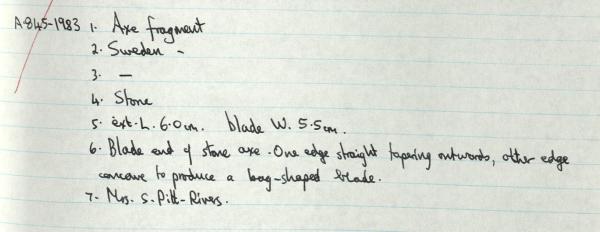 A845-1983 1. Axe fragment
2. Sweden -
3. —
4. Stone
5. ext. L. 6.0cm. blade W. 5.5cm.
6. Blade end of stone axe. One edge straight tapering outwards, other edge
concave to produce a bag-shaped blade.
7. Mrs. S. Pitt-Rivers.